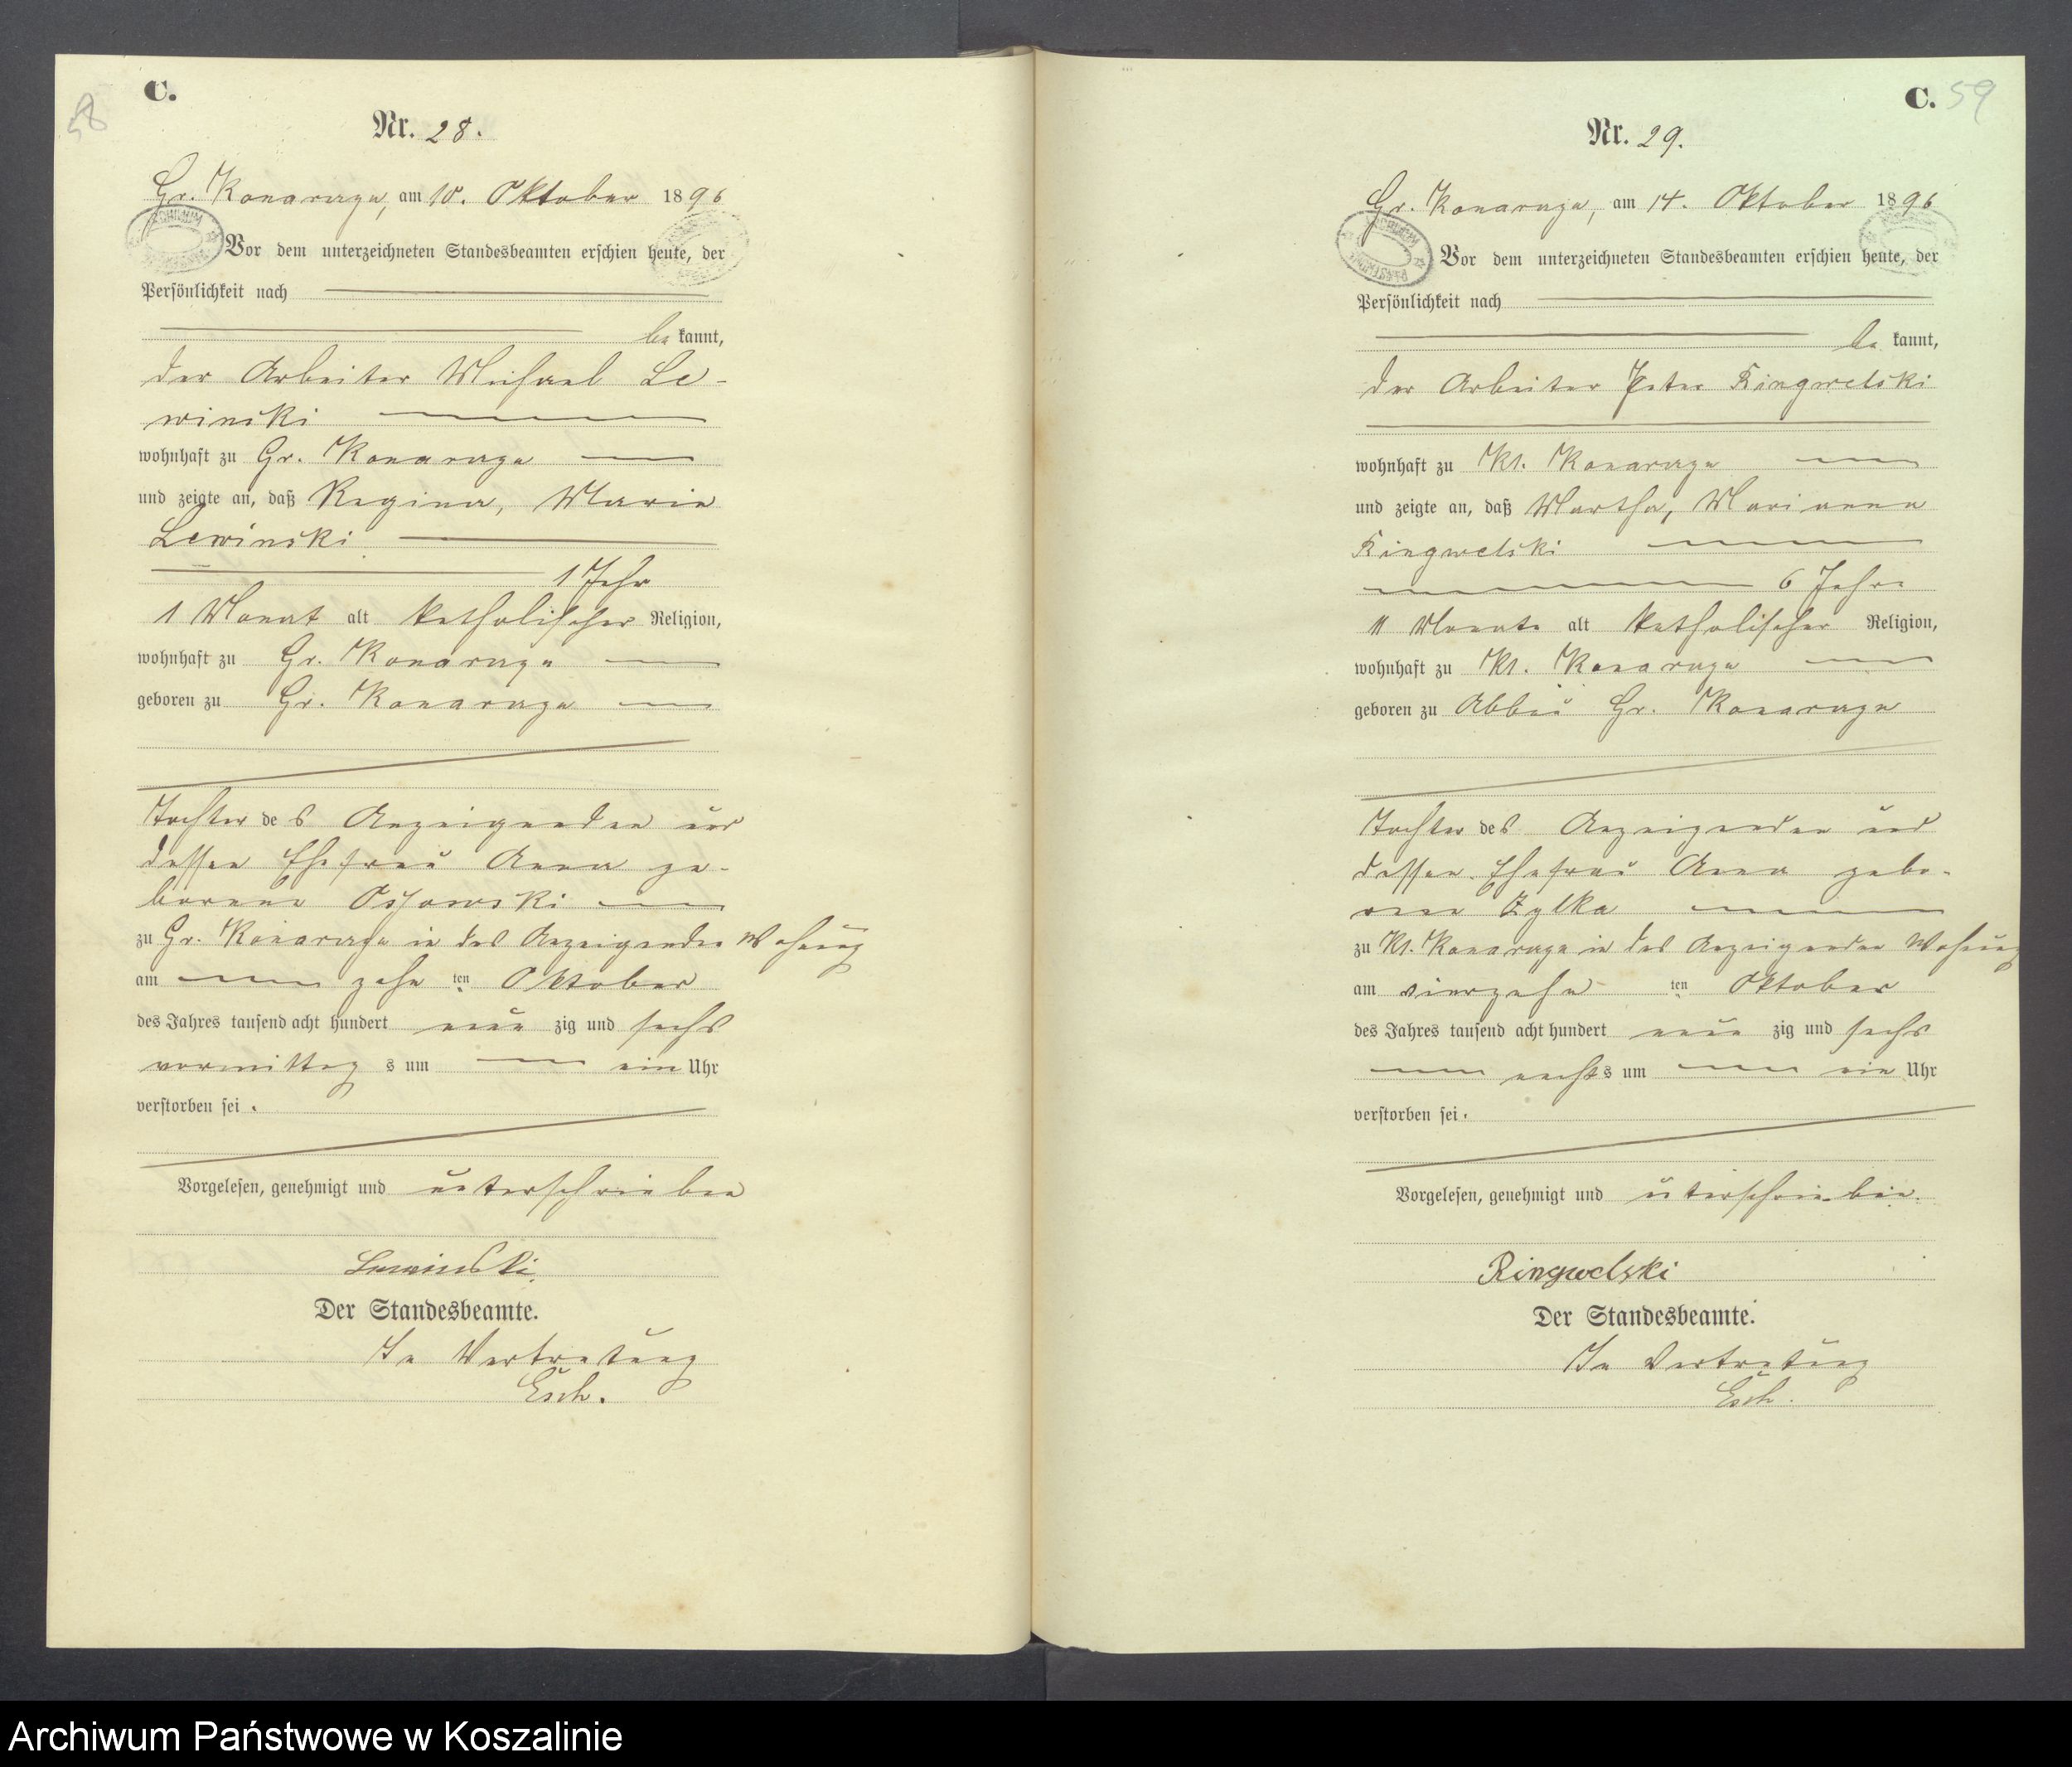 58
C.
Nr. 28.
Gr. Konarczyn, am 10. Oktober 1896
Vor dem unterzeichneten Standesbeamten erschien heute, der
Persönlichkeit nach
bekannt,
der Arbeiter Michael Le-
winski
wohnhaft zu Gr. Konarczyn
und zeigte an, daß Regina, Marie
Lewinski
1 Jahr
1 Monat alt katholischer Religion,
wohnhaft zu Gr. Konarczyn
geboren zu Gr. Konarczyn
Tochter des Anzeigenden und
dessen Ehefrau Anna ge-
borene Ossowski
zu Gr. Konarczyn in des Anzeigenden Wohnung
am zehnten Oktober
des Jahres tausend acht hundert neunzig und sechs
vormittags um ein Uhr
verstorben sei.
Vorgelesen, genehmigt und unterschrieben
Lewinski
Der Standesbeamte.
In Vertretung
Esch.
C. 59
Nr. 29.
Gr. Konarczyn, am 14. Oktober 1896
Vor dem unterzeichneten Standesbeamten erschien heute, der
Persönlichkeit nach
bekannt,
der Arbeiter Peter Ringwelski
wohnhaft zu Kl. Konarczyn
und zeigte an, daß Martha, Marianna
Ringwelski
6 Jahre
11 Monate alt katholischer Religion,
wohnhaft zu Kl. Konarczyn
geboren zu Abbau Gr. Konarczyn
Tochter des Anzeigenden und
dessen Ehefrau Anna gebo-
rene Zylka
zu Kl. Konarczyn in des Anzeigenden Wohnung
am vierzehnten Oktober
des Jahres tausend acht hundert neunzig und sechs
nachts um ein Uhr
verstorben sei.
Vorgelesen, genehmigt und unterschrieben.
Ringwelski
Der Standesbeamte.
In Vertretung
Esch.
Archiwum Państwowe w Koszalinie